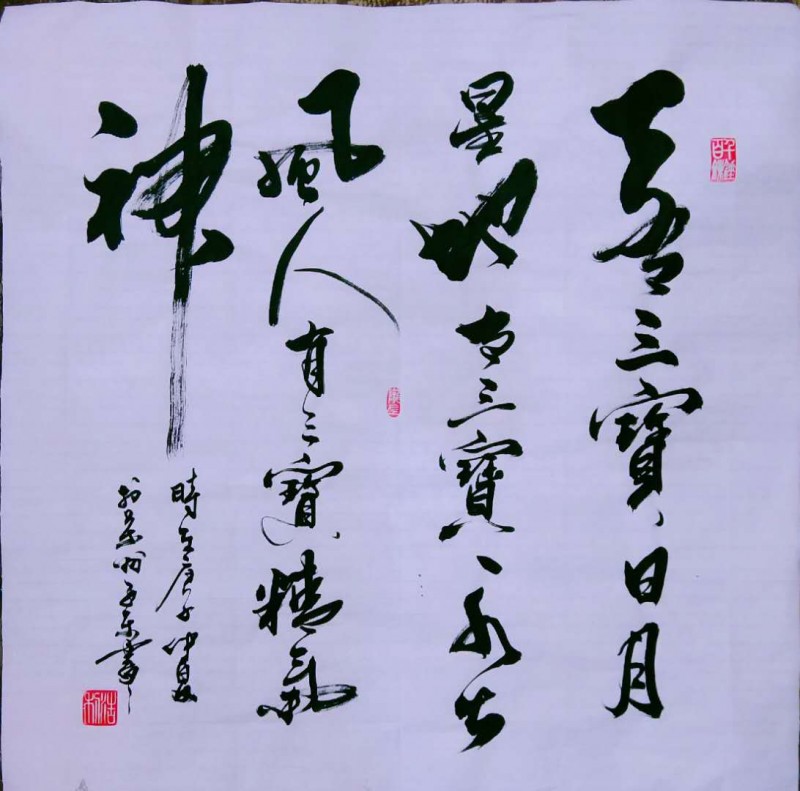 天有三寶日月
星地有三寶水火
風人有三寶精氣
神
時在庚子仲夏